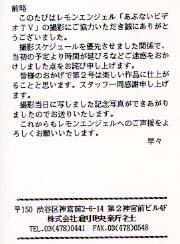 前略
このたびはレモンエンジェル「あぶないビデ
オTV」の撮影にご協力いただき誠にありがと
うございました。
撮影スケジュールを優先させました関係で、
当初の予定より時間が延びるなどご迷惑をおか
けしました点をお詫び申し上げます。
皆様のおかげで第2号は楽しい作品に仕上が
ることと思います。スタッフ一同感謝申し上げ
ます。
撮影当日に写しました記念写真ができあがり
ましたのでお送りいたします。
これからもレモンエンジェルへのご声援をよ
ろしくお願いいたします。
早々
〒150 渋谷区神宮前2-6-14 第2神宮前ビル4F
株式会社
TEL.03(478)0441 FAX.03(478)0548